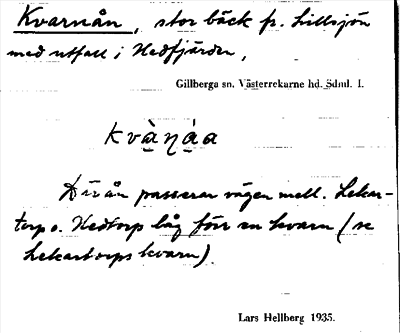 Kvarnån, stor bäck fr. Lillsjön
med utfall i Hedfjärden,
Gillberga sn. Västerrekarne hd. Sdml. I.
kvàṇáa
Där ån passerar vägen mell. Lekar-
torp o. Hedtorp låg förr en kvarn (se
Lekartorps kvarn).
Lars Hellberg 1935.